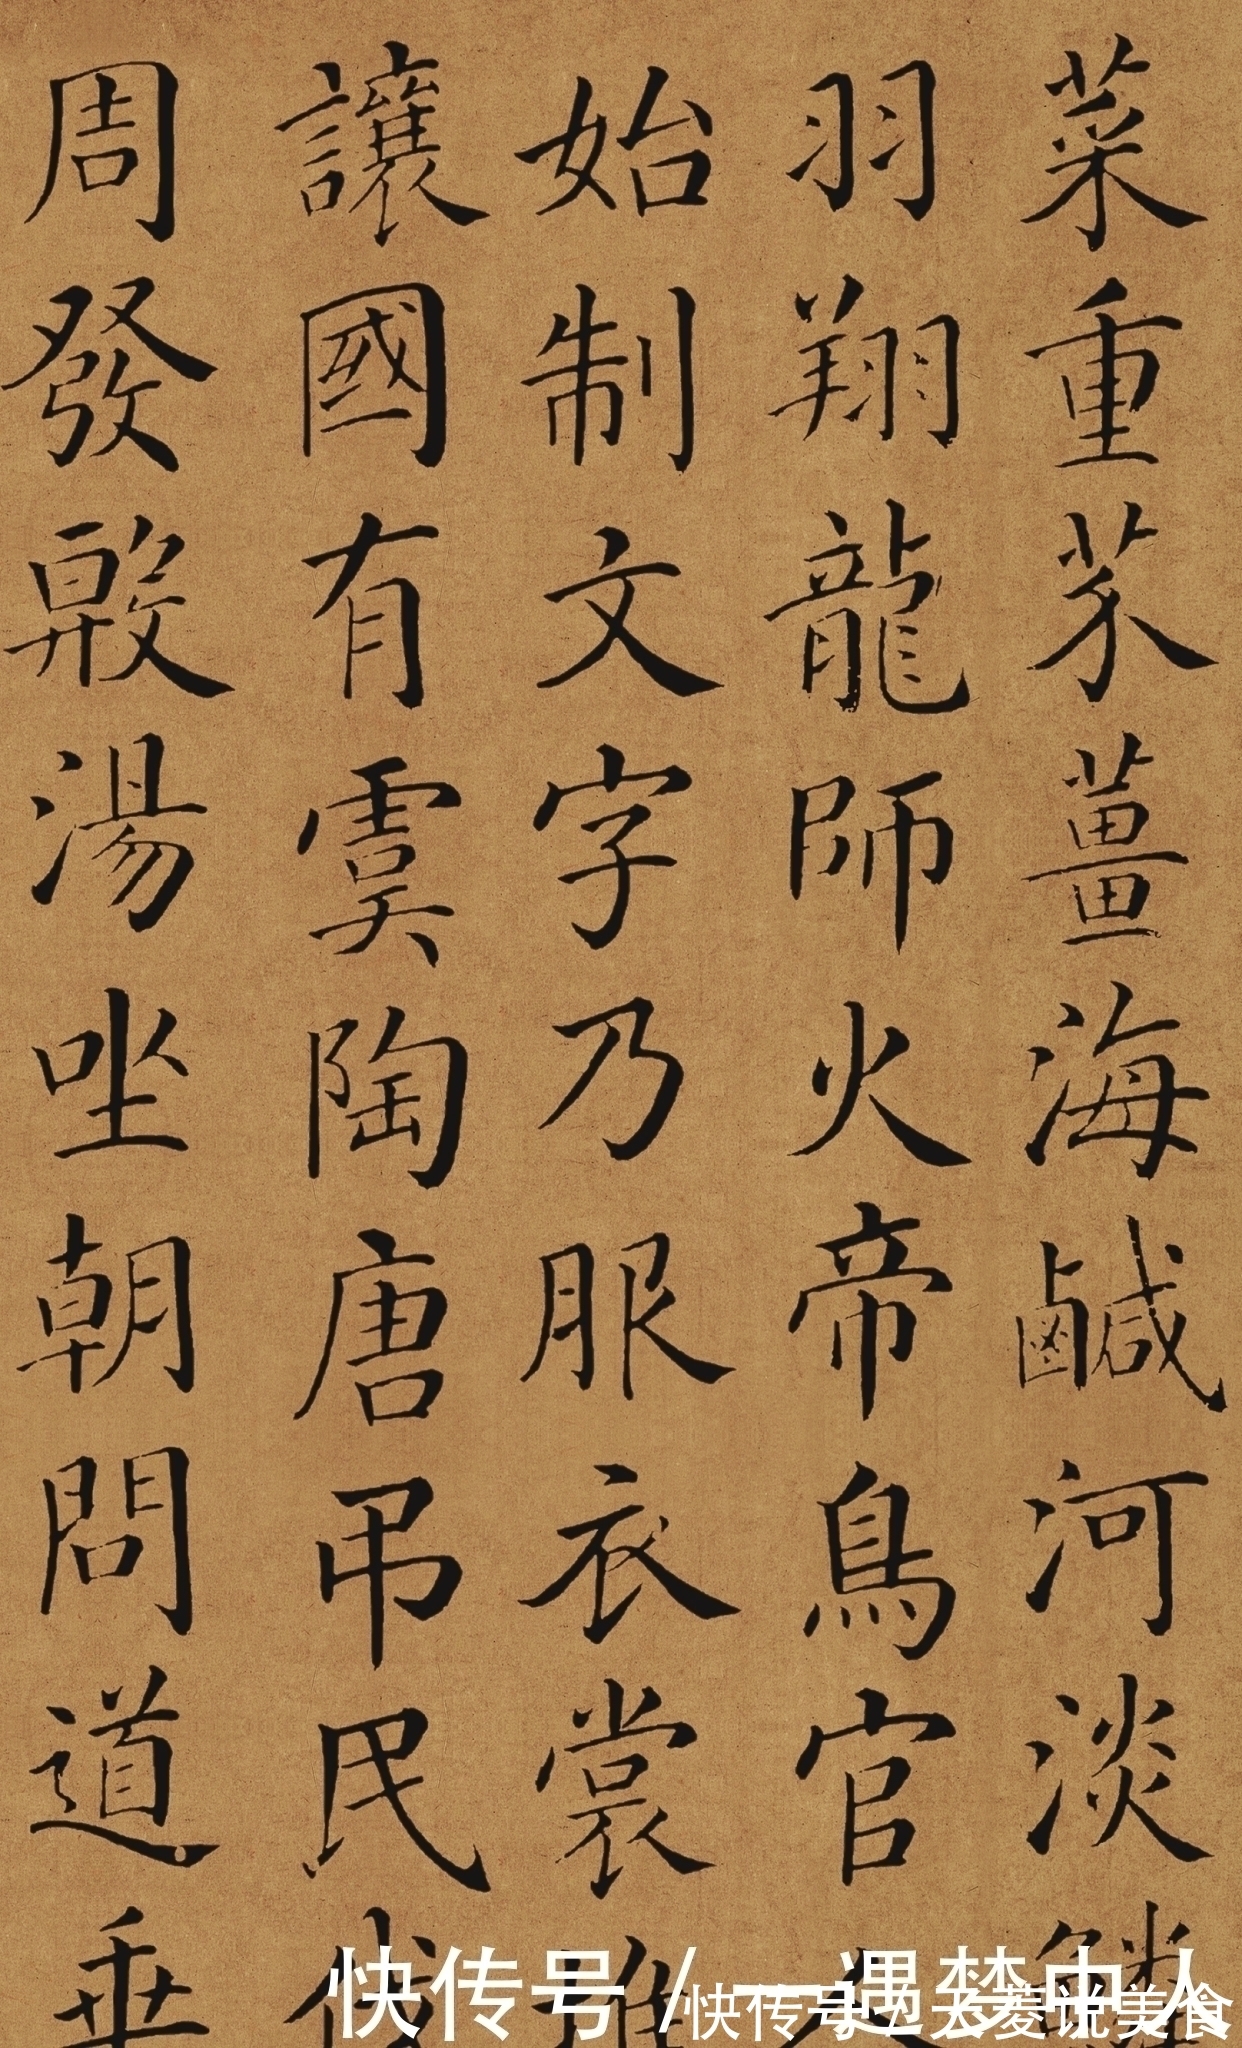 菜重芥薑海鹹河淡鱗
羽翔龍師火帝鳥官人
始制文字乃服衣裳推
讓國有虞陶唐弔民伐
周發殷湯坐朝問道垂
快传号 / 一遇梦中人